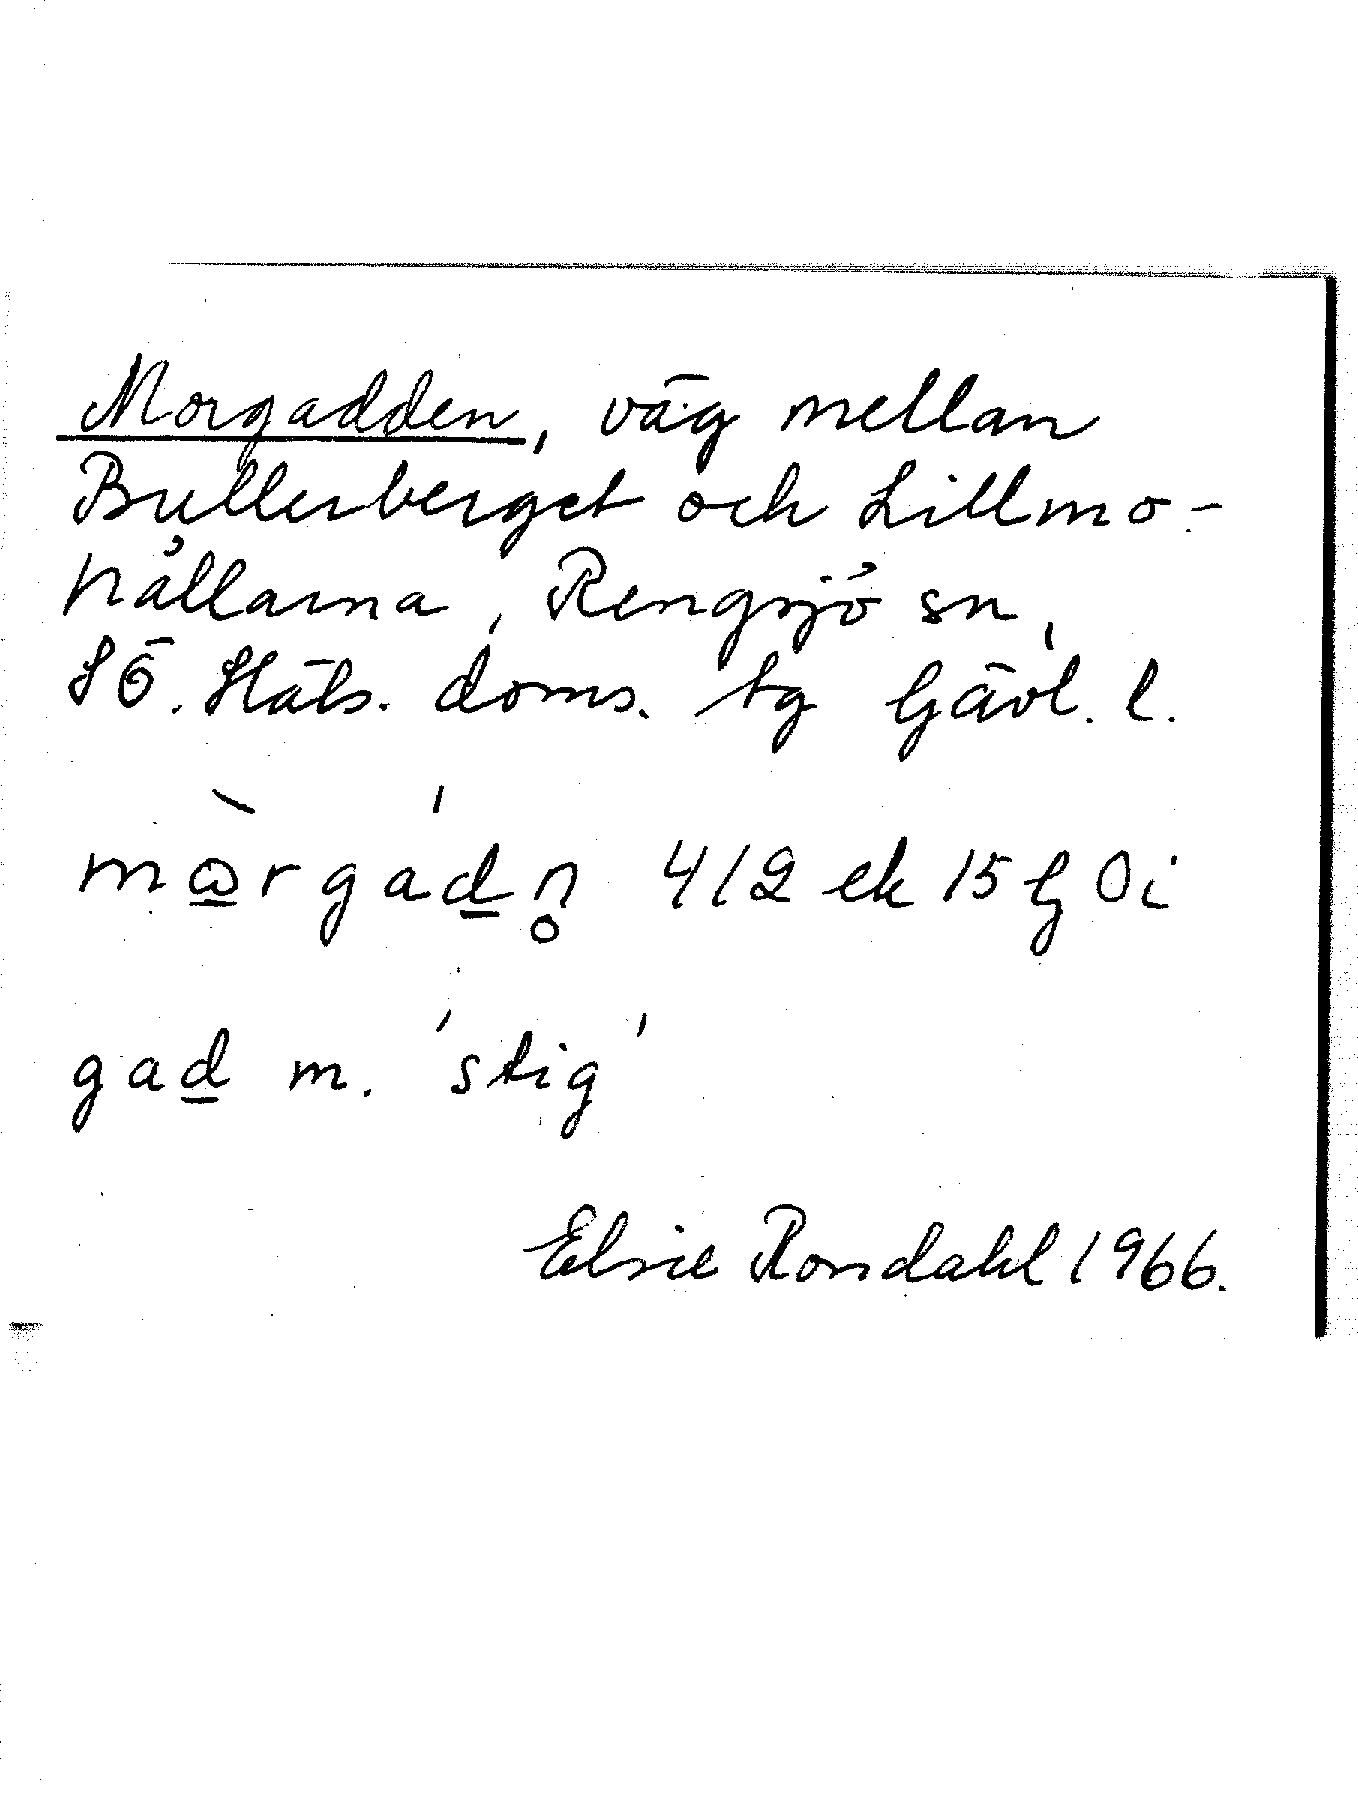 Morgadden, väg mellan
Bullerberget och Lillmo-
hällarna, Rengsjö sn,
SÖ. Häls. doms. tg Gävl. l.
412 ek 15 G 0i
gad m. 'stig'
Elsie Rondahl 1966.